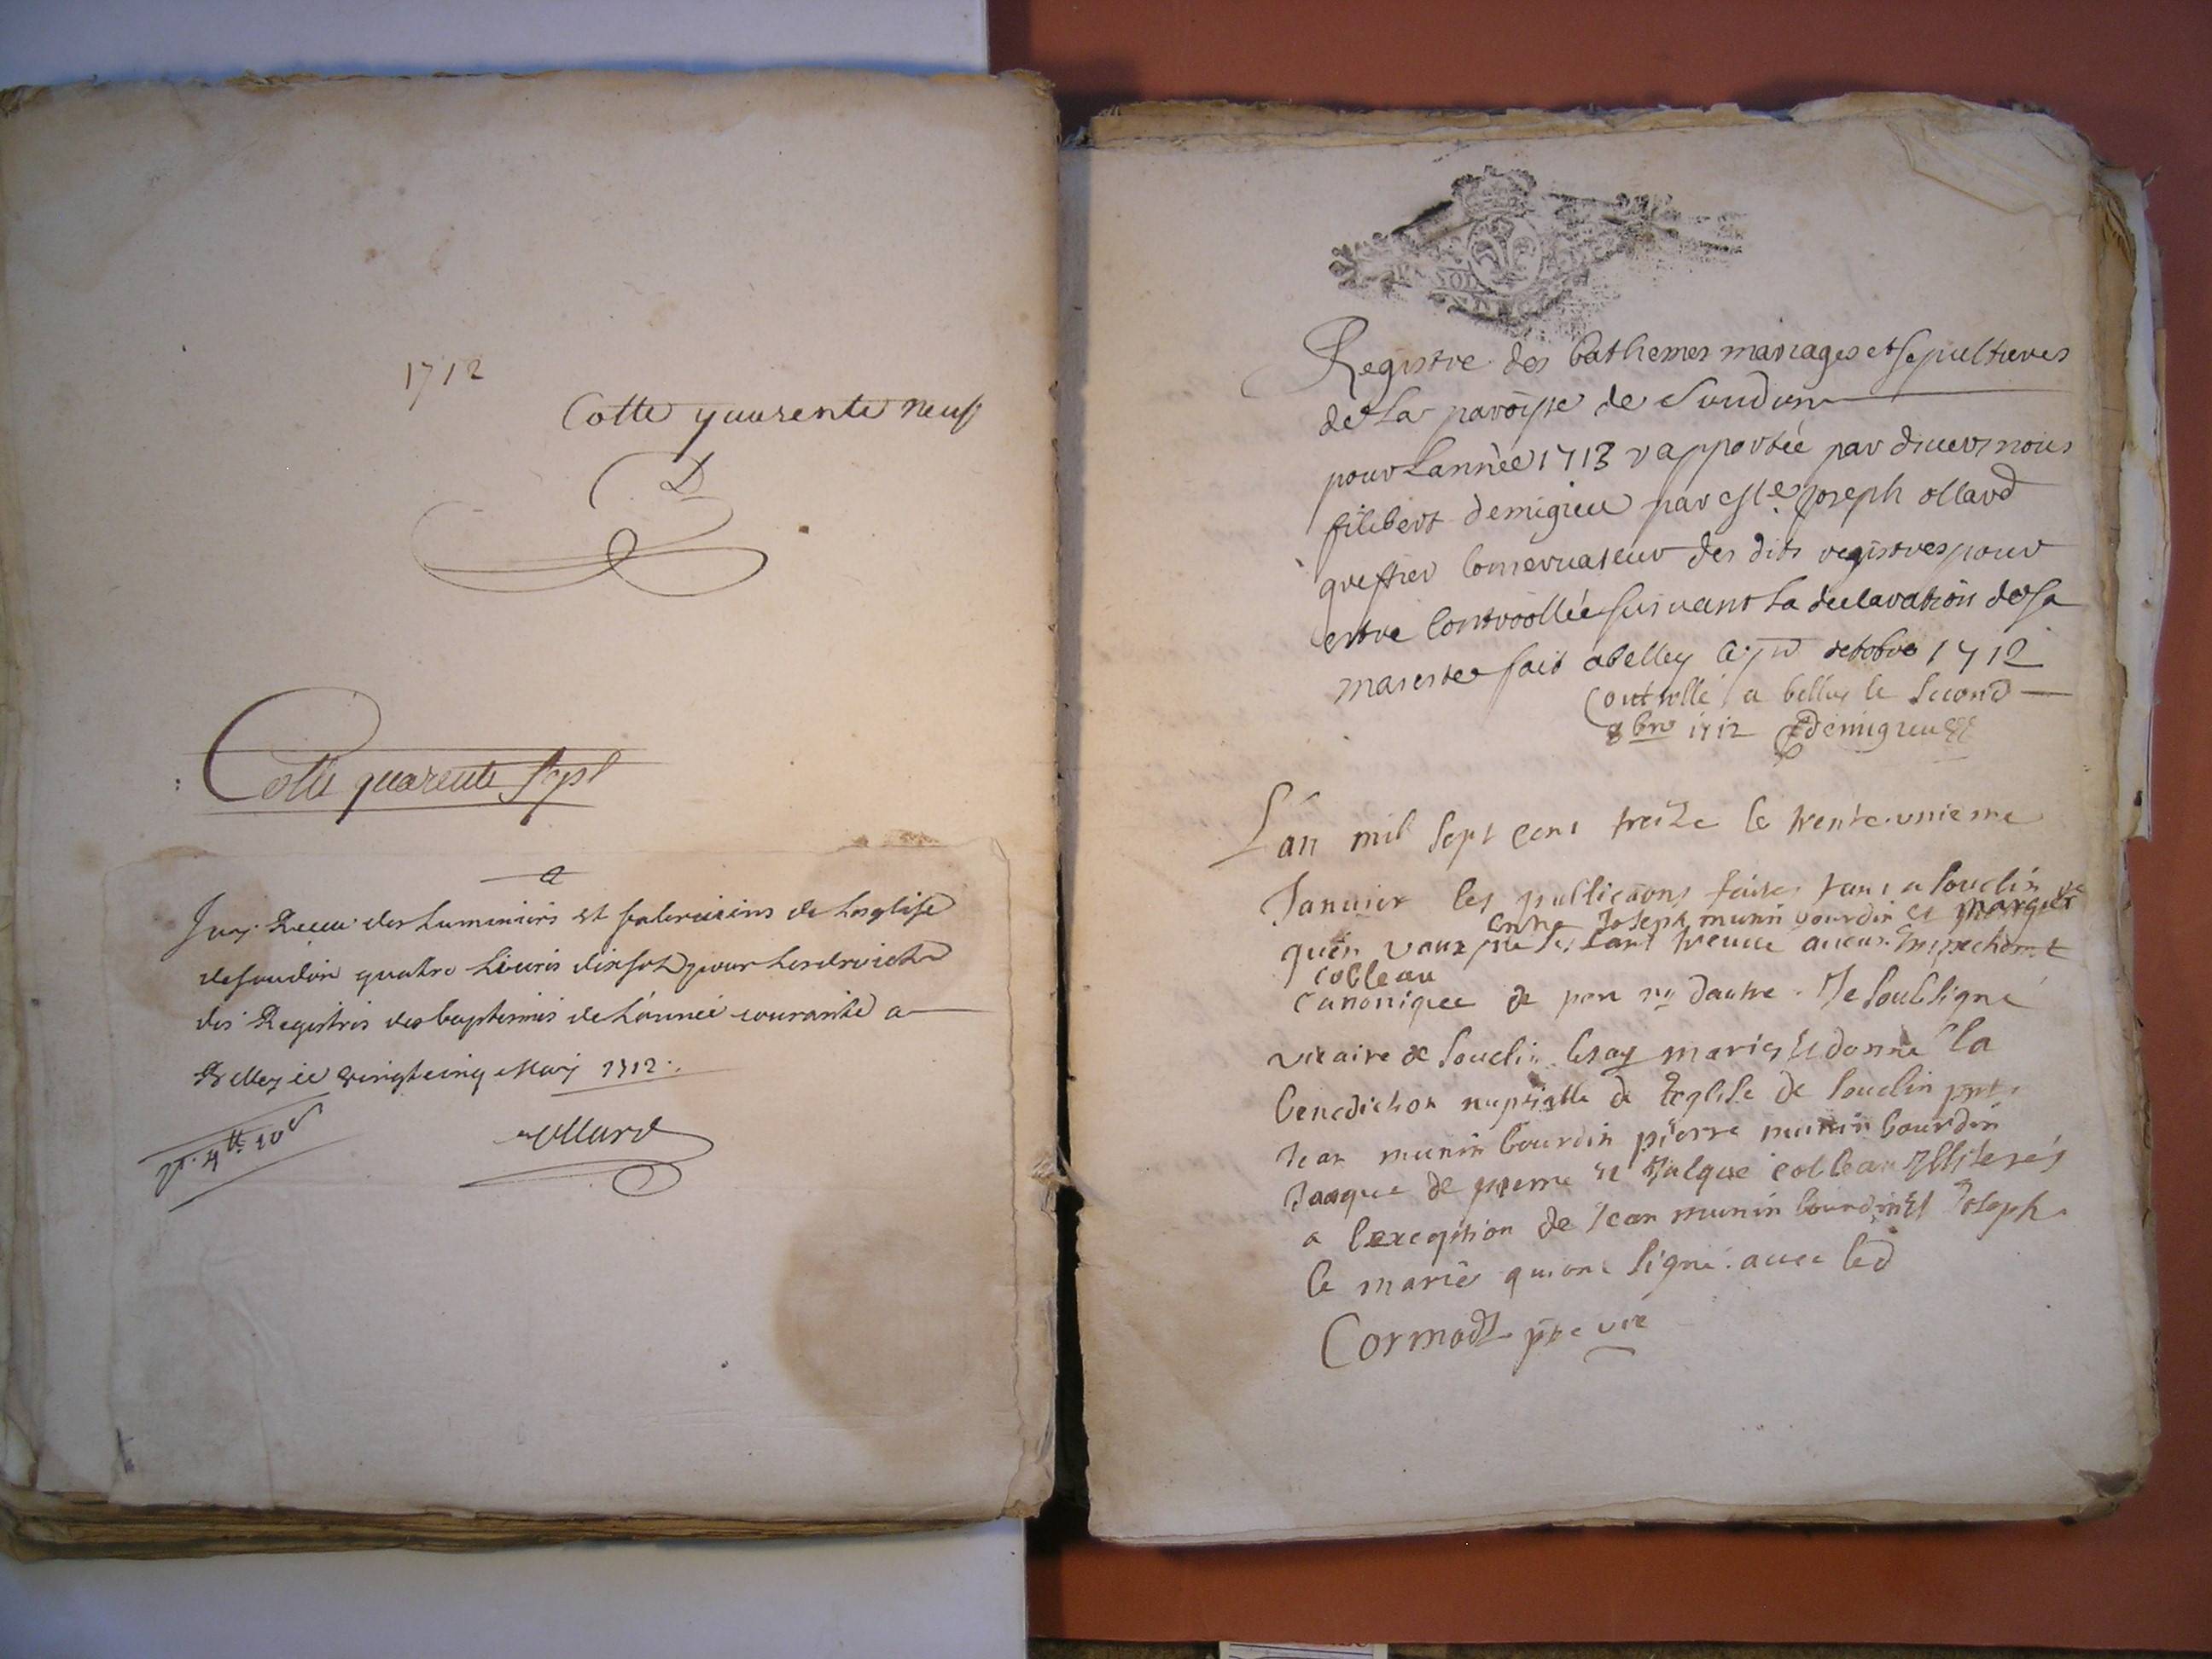 1712
Cotte quarente neuf
Cotte quarente sept
J'ay Receu des Luminiers et fabriciens de Lesglise
de Soudon quatre Liures dix sols pour Les droicts
des Registres des baptemes de L'année courante a
Belley ce vingt cinq May 1712.
4tt 10s
Ollard
SOL
Registre des bathemes mariages et sepultures
de La paroisse de Soudon
pour Lannèe 1713 rapportée par deuers nous
filibert demigieu par Joseph ollard
greffier Conseruateur des dits registres pour
estre Controollée suiuant La declaration de sa
maiestee fait a belley octobre 1712
Controllé a belley le second
8bre 1712 Demigieu
L'an mil sept cent treize le trente-unieme
Januier les publicaons faites tant a Souclin
entre Joseph munin bourdin et margte
quen vaux ne sestant treuue aucun Empechem^t
colleau
canonique de part ny dautre. Je soubsigné
vicaire de Souclin les ay mariés et donné la
benediction nuptialle de Léglise de Souclin pnts
Jean munin bourdin pierre munin bourdin
Jacque de pierre et Jacque colleau Illiterés
a lexception de Jean munin bourdin et Joseph
le mariés qui ont signé auec led
pbre vic